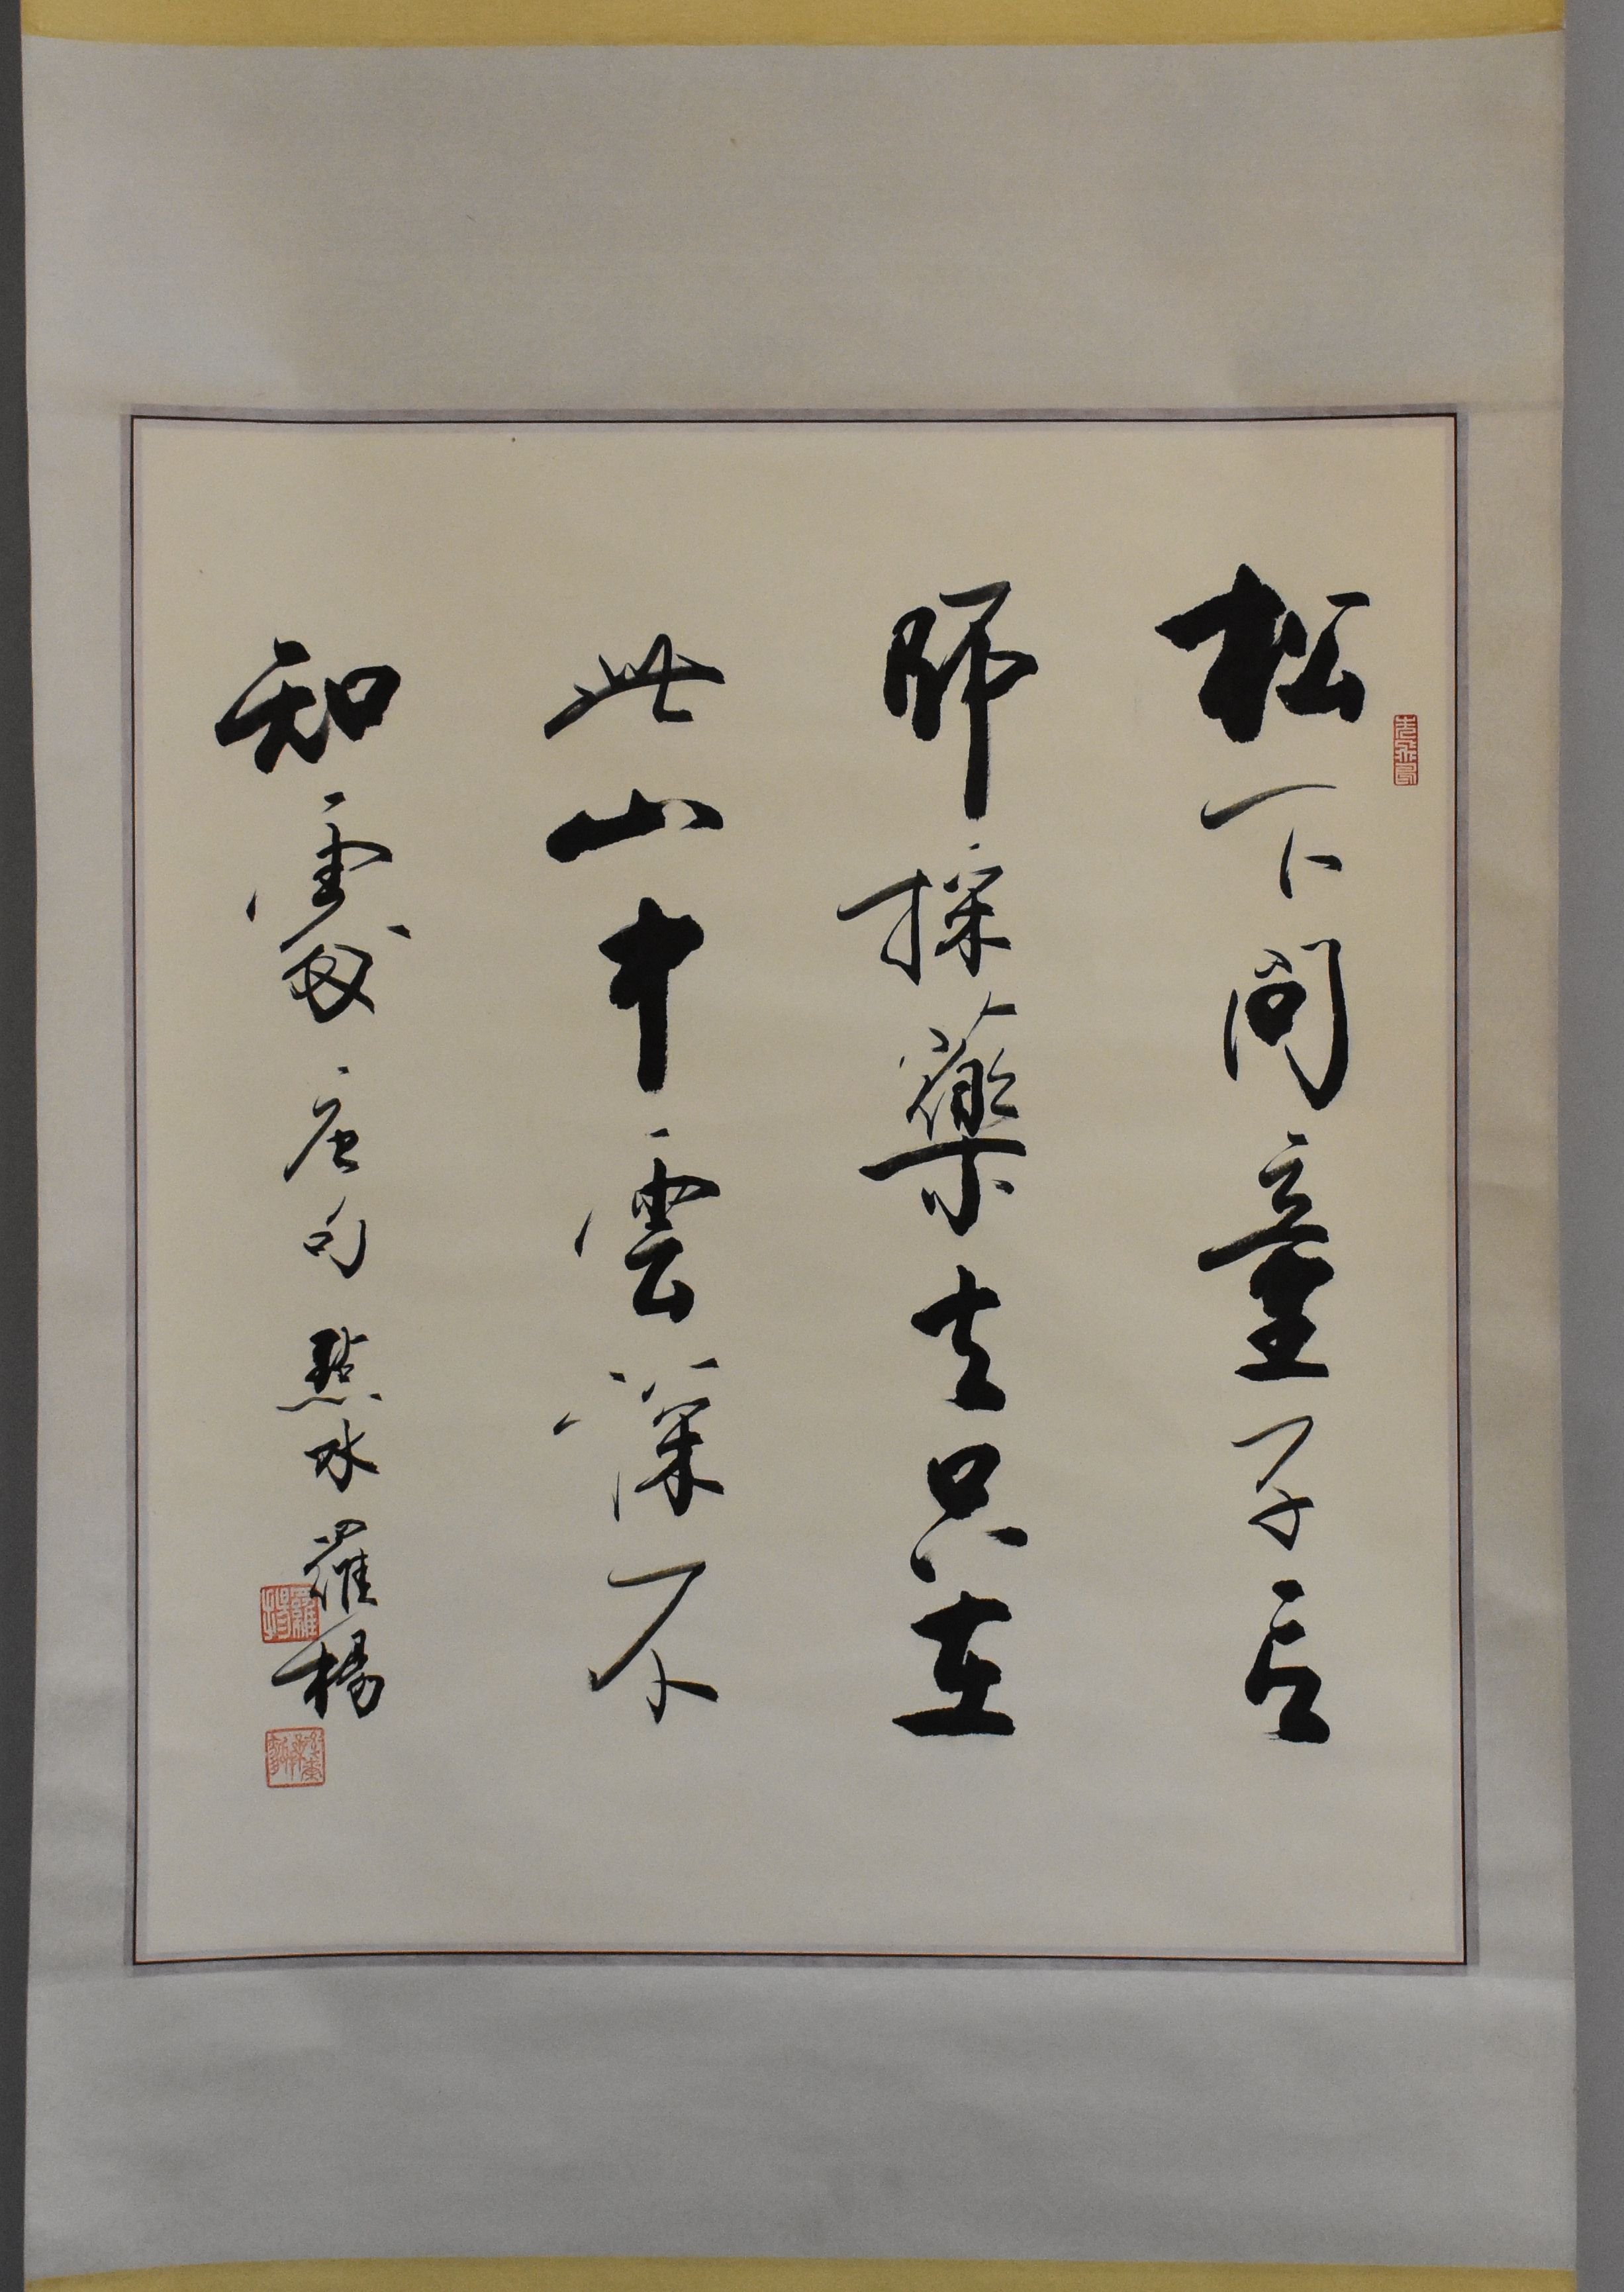 松下問童子言
師採藥去只在
此山中雲深不
知處 唐句 點水 羅楊
羅楊